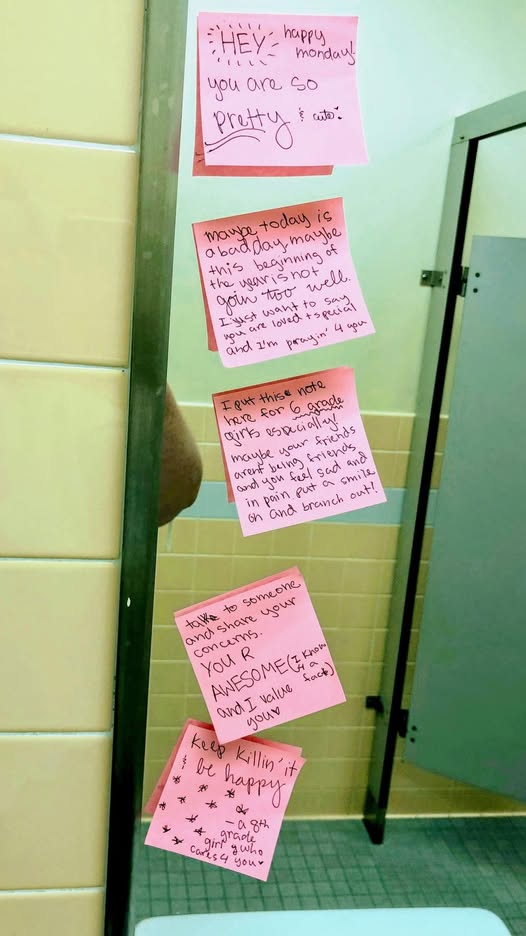 HEY happy
monday!
you are so
pretty & cute!
maybe today is
a bad day, maybe
this beginning of
the year is not
goin too well.
I just want to say
you are loved + special
and I'm prayin' 4 you
I put this note
here for 6 grade
girls especially!
maybe your friends
arent being friends
and you feel sad and
in pain put a smile
on and branch out!
talk to someone
and share your
concerns.
YOU R
AWESOME (I know
4 a
fact)
and I value
you♥
keep killin' it
& be happy
- a 8th
grade
girl who
cares 4 you♥